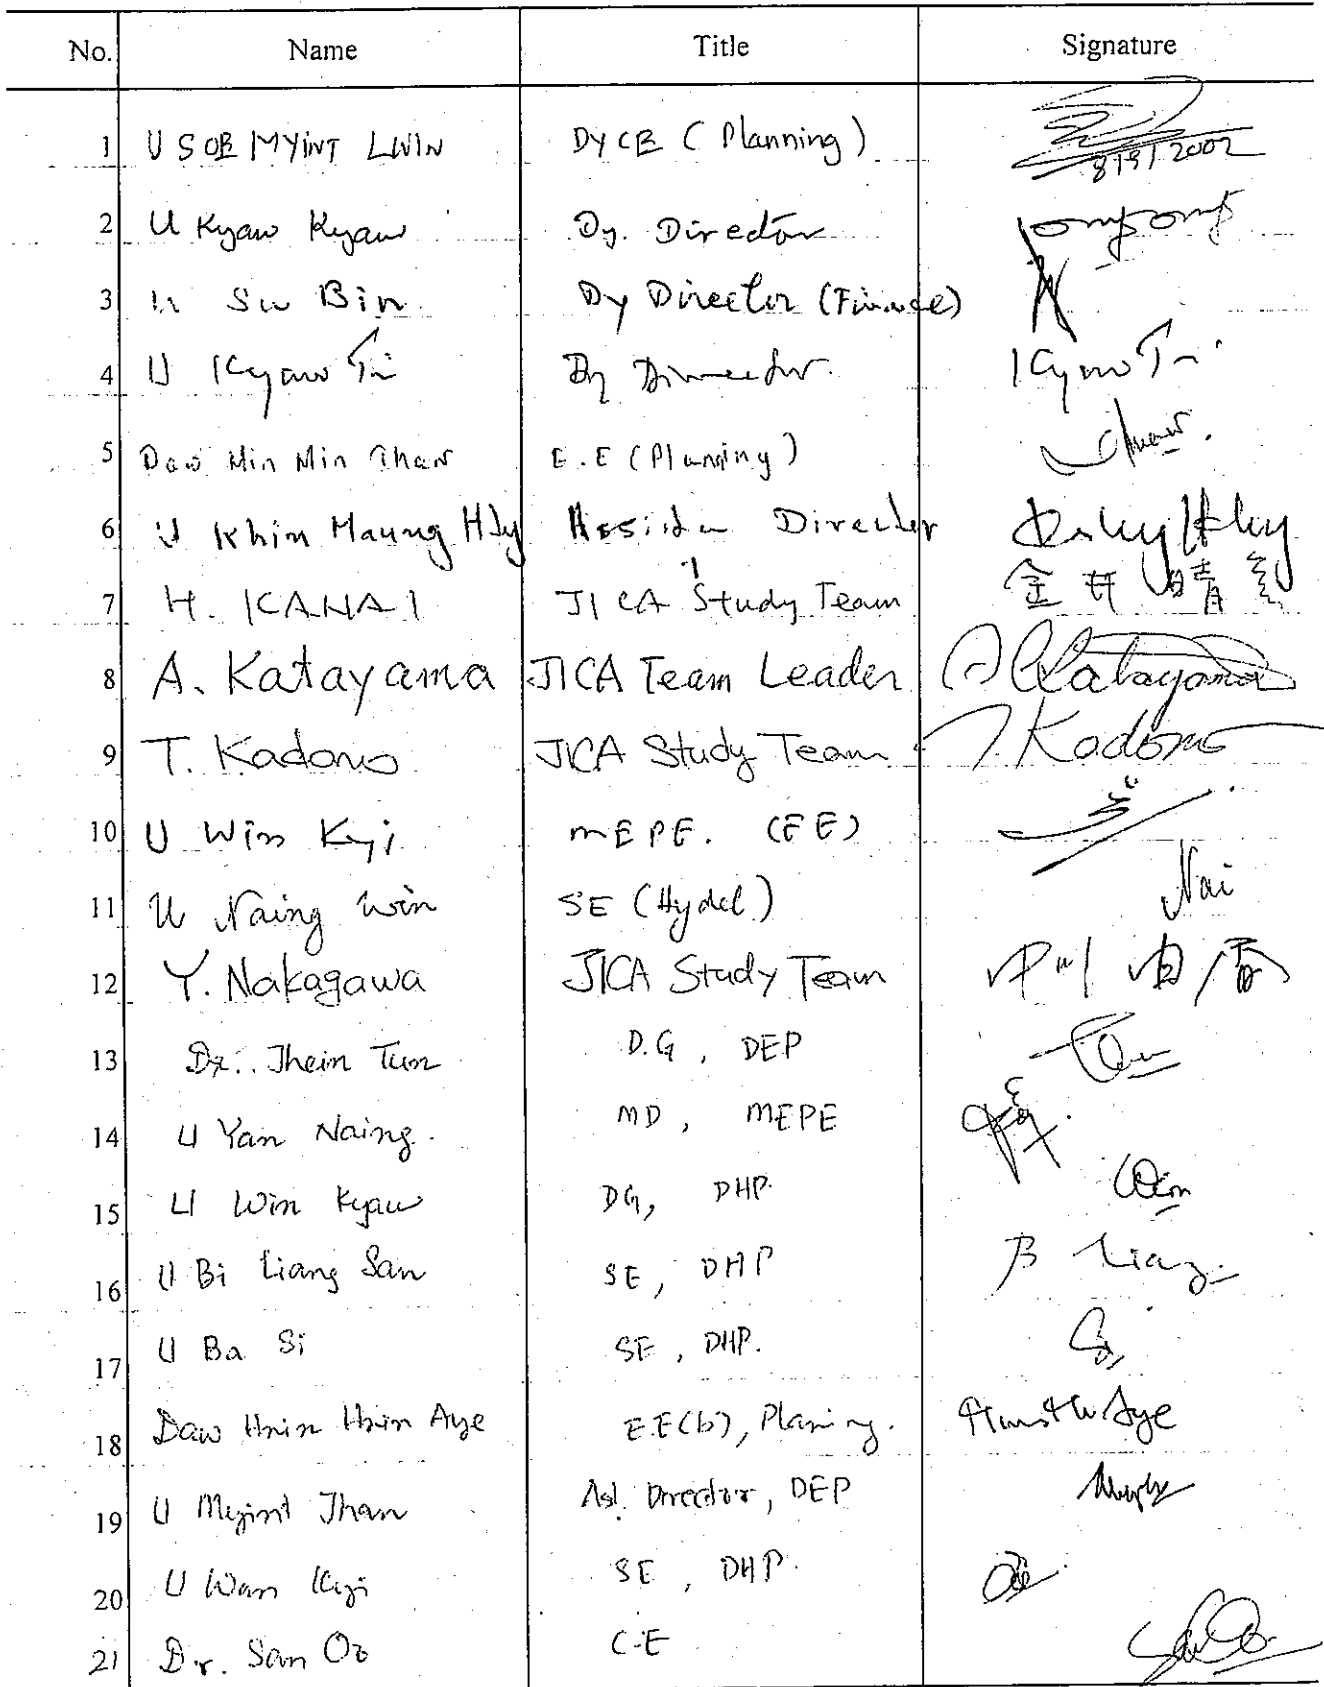 No. Name Title Signature
1 U SOE MYINT LWIN DYCE (Planning) 8/9/2002
2 U Kyaw Kyaw Dy. Director
3 U Su Bin Dy Director (Finance)
4 U Kyaw Tri Dy Director. Kyaw Tri
5 Daw Min Min Than E.E (Planning)
6 U Khin Maung Director
7 H. KANAI JICA Study Team 金井晴
8 A. Katayama JICA Team Leader A Katayama
9 T. Kadono JICA Study Team T. Kadono
10 U Win Kyi MEPE. (EE)
11 U Naing Win SE (Hydel) Nai
12 Y. Nakagawa JICA Study Team 中川
13 Dr. Thein Tun D.G, DEP
14 U Yan Naing. MD, MEPE
15 U Win Kyaw DG, DHP. Win
16 U Bi Liang San SE, DHP B Liang
17 U Ba Si SE, DHP.
18 Daw Hnin Hnin Aye E.E(b), Planing. Aye
19 U Myint Than Ast. Director, DEP
20 U Wan Kyi SE, DHP.
21 Dr. San Oo C.E